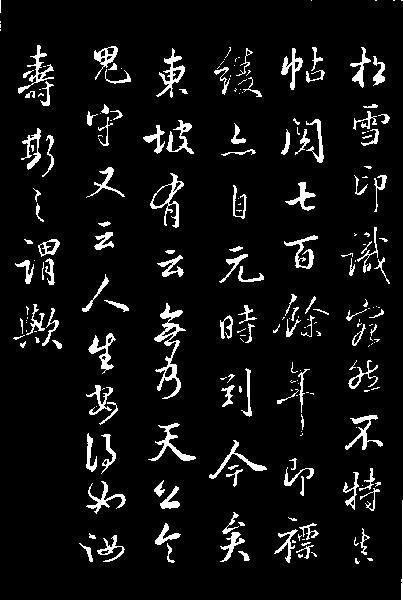 松雪印識宛然不特真
帖閱七百餘年即裱
綾亦自元時到今矣
東坡有云無乃天公令
鬼守又云人生安得如汝
壽斯之謂歟